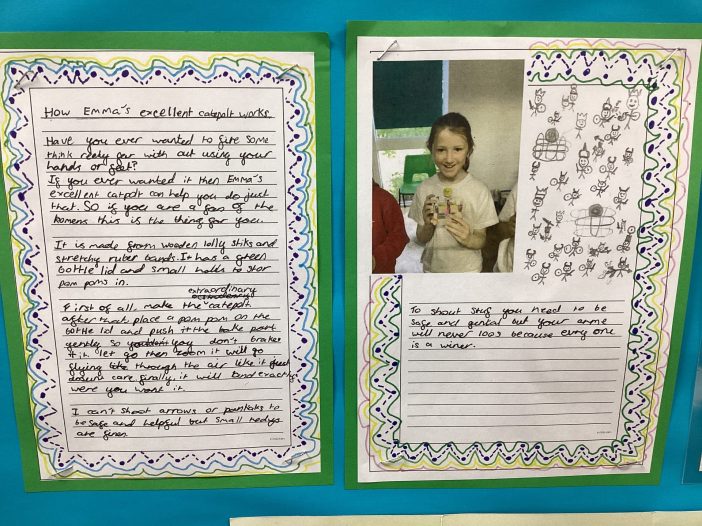 How Emma's excellent catapolt works.
Have you ever wanted to fire some
think reely far with out using your
hands or feet?
If you ever wanted it then Emma's
excellent catpolt can help you do just
that. So if you are a fan of the
Romens this is the thing for you.
It is made from wooden lolly stiks and
stretchy ruber bands. It has a green
bottle lid and small holds to stor
pom poms in.
extraordinary
First of all, make the catapolt
after that place a pom pom on the
bottle lid and push it the bake part
gently so you don't brake
it let go then zoom it will go
flying through the air like it just
dosunt care finally, it will land exactley
were you want it.
I can't shoot arrows or
be safe and helpful but small
are fine.
To shout stuf you need to be
safe and gental but your arme
will never loos because evry one
is a winer.